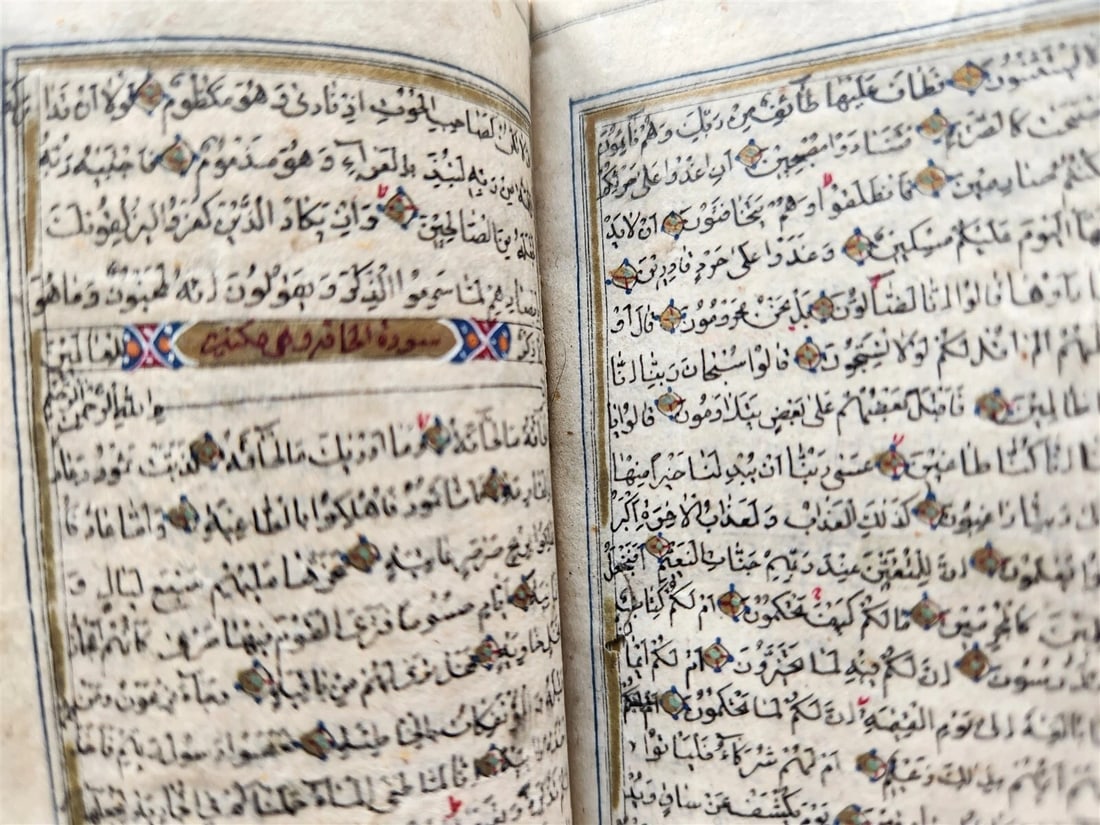 لا يستثنون فطاف عليها طائف من ربك وهم نائمون
كالصريم فتنادوا مصبحين ان اغدوا على حرثكم
كنتم صارمين فانطلقوا وهم يتخافتون ان لا يد
اليوم عليكم مسكين وغدوا على حرد قادرين
راوها قالوا انا لضالون بل نحن محرومون قال او
الم اقل لكم لولا تسبحون قالوا سبحان ربنا انا
ظالمين فاقبل بعضهم على بعض يتلاومون قالوا يا
انا كنا طاغين عسى ربنا ان يبدلنا خيرا منها
ربنا راغبون كذلك العذاب ولعذاب الاخرة اكبر
يعلمون ان للمتقين عند ربهم جنات النعيم افنجعل
كالمجرمين مالكم كيف تحكمون ام لكم كتاب فيه
تدرسون ان لكم فيه لما تخيرون ام لكم ايمان
بالغة الى يوم القيمة ان لكم لما تحكمون
ايهم بذلك زعيم ام لهم شركاء فلياتوا
يكشف عن ساق ويد
كصاحب الحوت اذ نادى وهو مكظوم لولا ان تدا
من ربه لنبذ بالعراء وهو مذموم فاجتبيه ربه
من الصالحين وان يكاد الذين كفروا ليزلقونك
لما سمعوا الذكر ويقولون انه لمجنون وما هو
للعالمين
سورة الحاقة وهي مكية
الله الرحمن الرحيم
الحاقة ما الحاقة وما ادريك ما الحاقة كذبت ثمود وعاد
بالقارعة فاما ثمود فاهلكوا بالطاغية واما عاد فا
بريح صرصر عاتية سخرها عليهم سبع ليال و
ايام حسوما فترى القوم فيها صرعى كانهم اعجاز
نخل خاوية فهل ترى لهم من باقية وجاء فرعون ومن
والمؤتفكات بالخاطئة فعصوا رسول ربهم فاخذ
انا لما طغى الماء حملناكم في الجارية لنجعلها